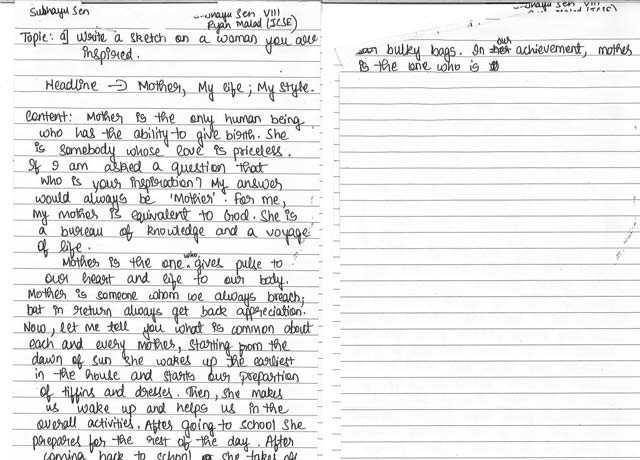 Subhayu Sen
Subhayu Sen VIII
Ryan Malad (ICSE)
Topic: Write a sketch on a woman you are
inspired.
Headline → Mother, My life; My style.
Content: Mother is the only human being
who has the ability to give birth. She
is somebody whose love is priceless.
If I am asked a question that
who is your inspiration? My answer
would always be 'Mother'. For me,
my mother is equivalent to God. She is
a bureau of knowledge and a voyage
of life.
Mother is the one who gives pulse to
our heart and life to our body.
Mother is someone whom we always breach;
but in return always get back appreciation.
Now, let me tell you what is common about
each and every mother, starting from the
dawn of sun she wakes up the earliest
in the house and starts our prepartion
of tiffins and dresses. Then, she makes
us wake up and helps us in the
overall activities. After going to school she
prepares for the rest of the day. After
coming back to school she takes
Subhayu Sen VIII
Malad (ICSE)
bulky bags. In our achievement, mother
is the one who is